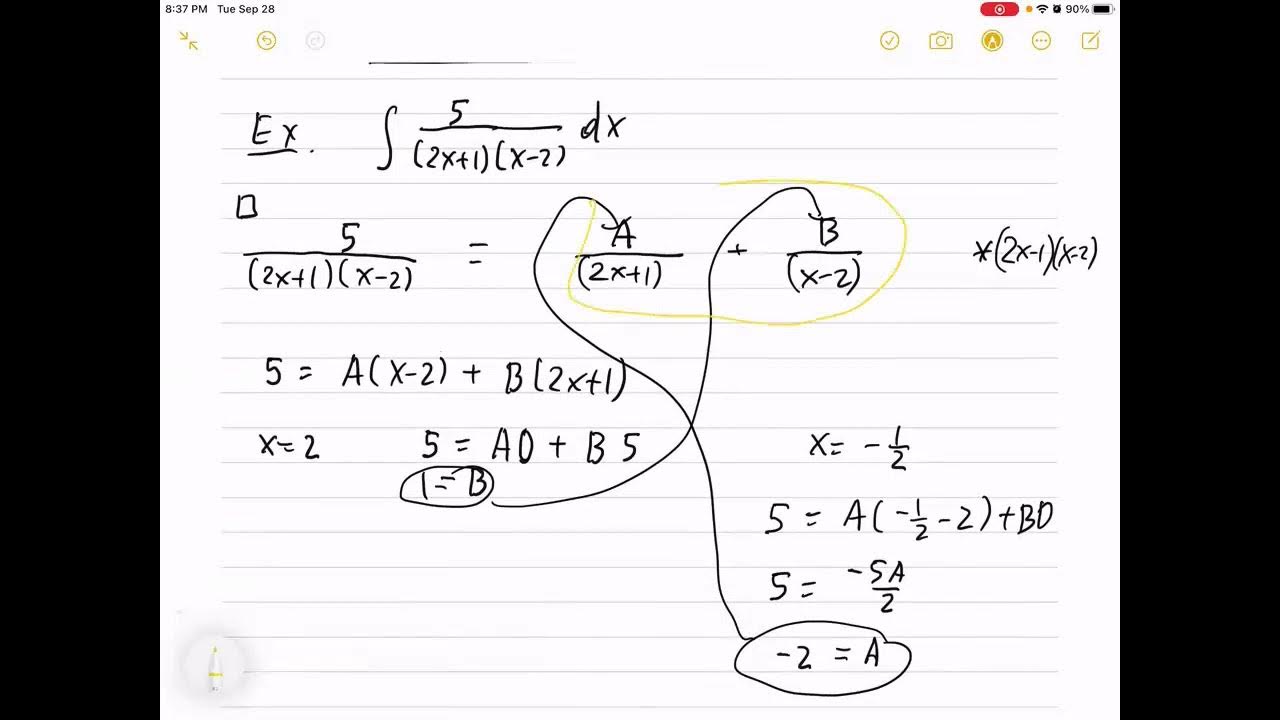 8:37 PM Tue Sep 28 90%
Ex. ∫ 5/((2x+1)(x-2)) dx
5/((2x+1)(x-2)) = A/(2x+1) + B/(x-2) *(2x-1)(x-2)
5 = A(x-2) + B(2x+1)
x=2 5 = A0 + B 5
1 = B
x = -1/2
5 = A(-1/2 - 2) + B0
5 = -5A/2
-2 = A